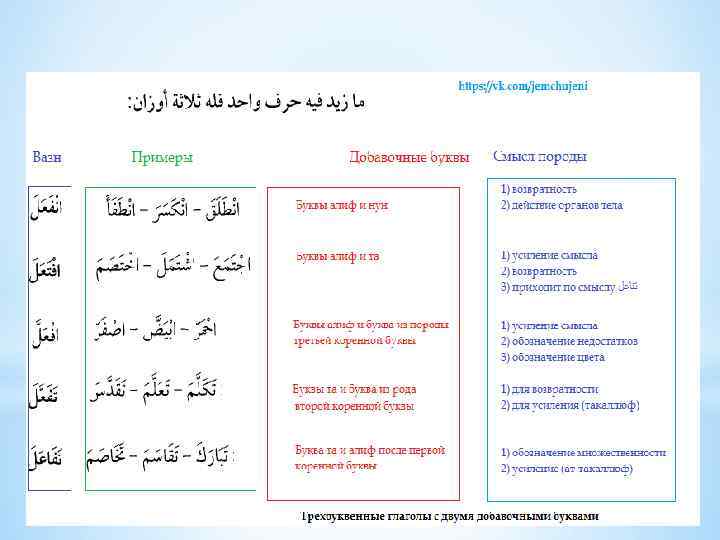 https://vk.com/jemchujeni
ما زيد فيه حرف واحد فله ثلاثة أوزان:
Вазн Примеры Добавочные буквы Смысл породы
انْفَعَلَ
انْطَلَقَ – انْكَسَرَ – انْطَفَأَ
Буквы алиф и нун
1) возвратность
2) действие органов тела
افْتَعَلَ
اجْتَمَعَ – اشْتَمَلَ – اخْتَصَمَ
Буквы алиф и та
1) усиление смысла
2) возвратность
3) приходит по смыслу تَفَاعَلَ
افْعَلَّ
احْمَرَّ – ابْيَضَّ – اصْفَرَّ
Буквы алиф и буква из породы
третьей коренной буквы
1) усиление смысла
2) обозначение недостатков
3) обозначение цвета
تَفَعَّلَ
تَكَلَّمَ – تَعَلَّمَ – تَقَدَّسَ
Буквы та и буква из рода
второй коренной буквы
1) для возвратности
2) для усиления (такаллюф)
تَفَاعَلَ
تَبَارَكَ – تَقَاسَمَ – تَخَاصَمَ
Буква та и алиф после первой
коренной буквы
1) обозначение множественности
2) усиление (ат такаллюф)
Трехбуквенные глаголы с двумя добавочными буквами